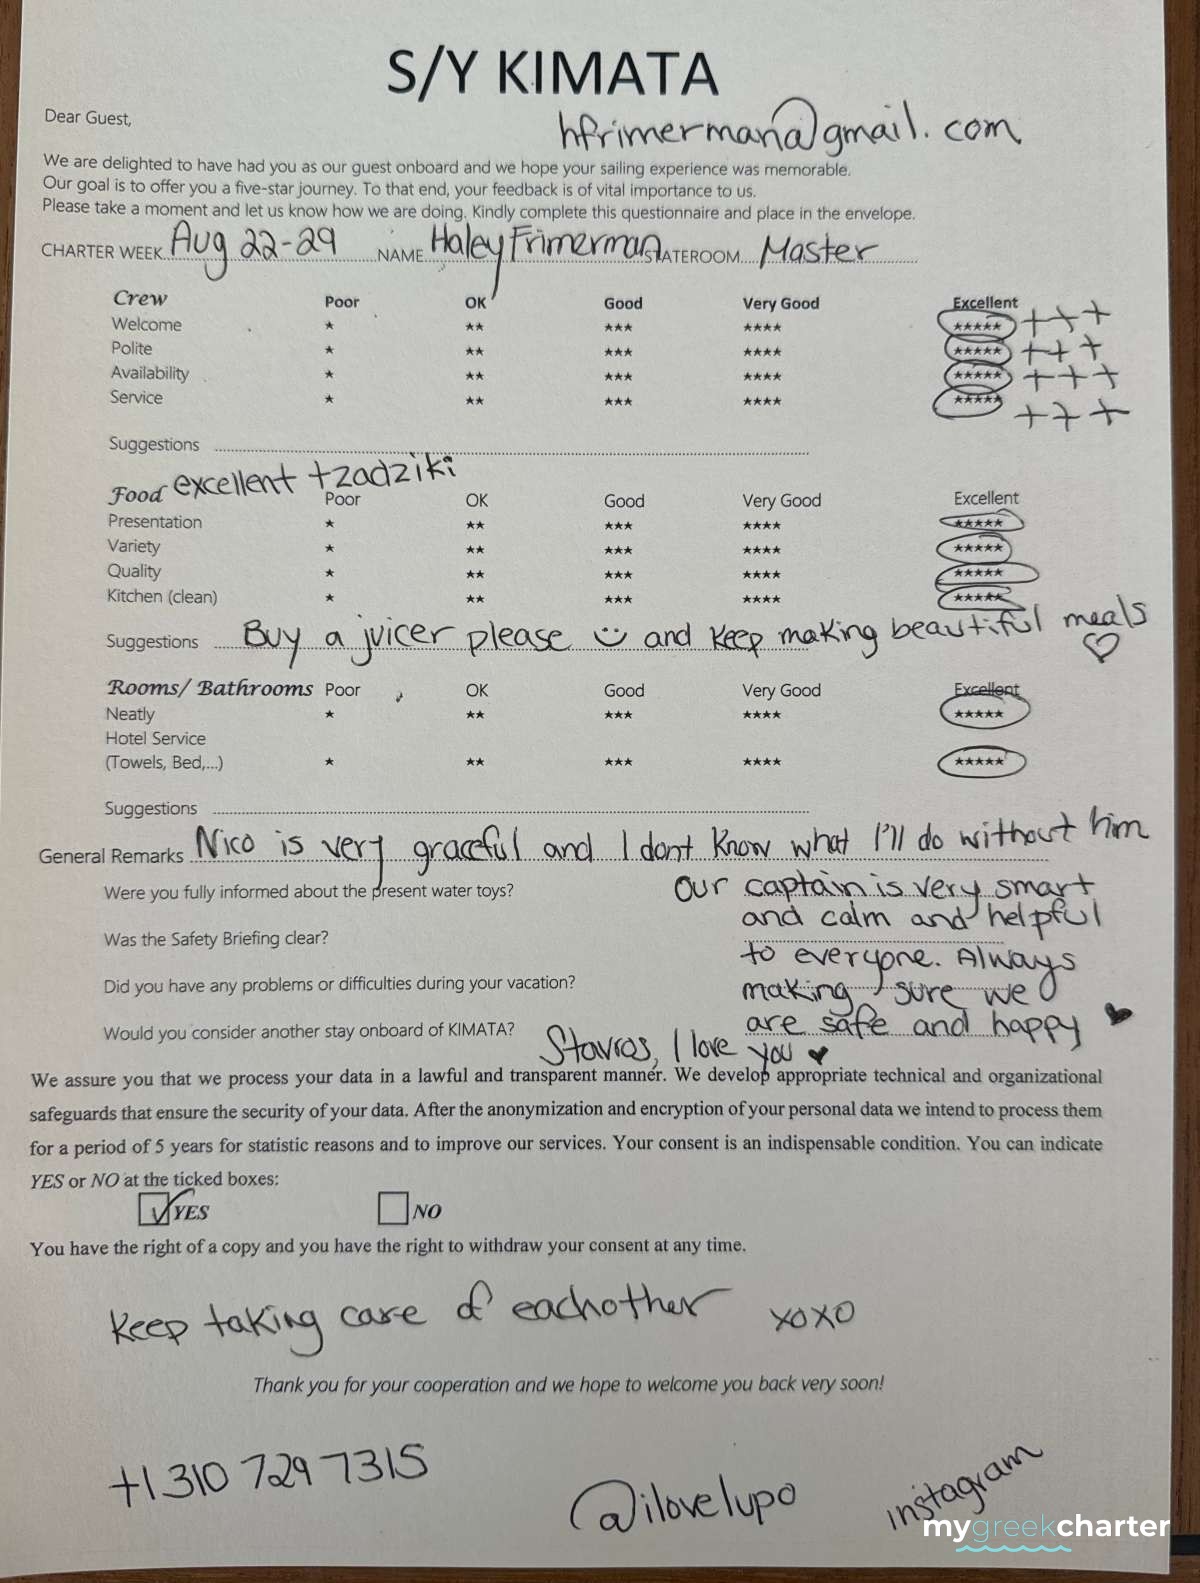 S/Y KIMATA
Dear Guest,
hfrimerman@gmail.com
We are delighted to have had you as our guest onboard and we hope your sailing experience was memorable.
Our goal is to offer you a five-star journey. To that end, your feedback is of vital importance to us.
Please take a moment and let us know how we are doing. Kindly complete this questionnaire and place in the envelope.
CHARTER WEEK Aug 22-29 NAME Haley Frimerman STATEROOM Master
Crew Poor OK Good Very Good Excellent
Welcome ★ ★★ ★★★ ★★★★ ★★★★★ +++
Polite ★ ★★ ★★★ ★★★★ ★★★★★ +++
Availability ★ ★★ ★★★ ★★★★ ★★★★★ +++
Service ★ ★★ ★★★ ★★★★ ★★★★★ +++
Suggestions
excellent tzadziki
Food Poor OK Good Very Good Excellent
Presentation ★ ★★ ★★★ ★★★★ ★★★★★
Variety ★ ★★ ★★★ ★★★★ ★★★★★
Quality ★ ★★ ★★★ ★★★★ ★★★★★
Kitchen (clean) ★ ★★ ★★★ ★★★★ ★★★★★
Suggestions Buy a juicer please ☺ and keep making beautiful meals ♡
Rooms/ Bathrooms Poor OK Good Very Good Excellent
Neatly ★ ★★ ★★★ ★★★★ ★★★★★
Hotel Service
(Towels, Bed,...) ★ ★★ ★★★ ★★★★ ★★★★★
Suggestions
General Remarks Nico is very graceful and I dont know what I'll do without him
Were you fully informed about the present water toys?
Our captain is very smart
and calm and helpful
Was the Safety Briefing clear?
to everyone. Always
Did you have any problems or difficulties during your vacation?
making sure we
are safe and happy ♥
Would you consider another stay onboard of KIMATA?
Stavros, I love you ♥
We assure you that we process your data in a lawful and transparent manner. We develop appropriate technical and organizational
safeguards that ensure the security of your data. After the anonymization and encryption of your personal data we intend to process them
for a period of 5 years for statistic reasons and to improve our services. Your consent is an indispensable condition. You can indicate
YES or NO at the ticked boxes:
☑ YES ☐ NO
You have the right of a copy and you have the right to withdraw your consent at any time.
Keep taking care of eachother xoxo
Thank you for your cooperation and we hope to welcome you back very soon!
+1 310 729 7315
@ilovelupo
instagram
mygreekcharter